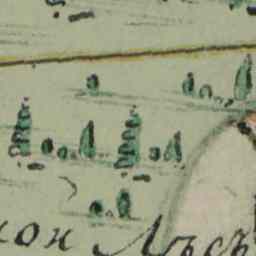 кон Лѣсъ